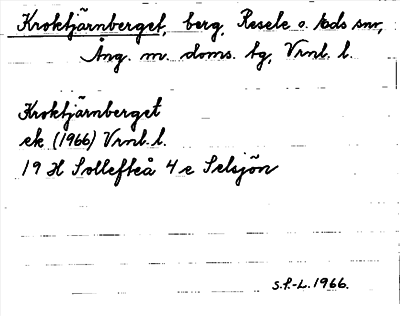 Kroktjärnberget, berg, Resele o. Eds snr,
Ång. m. doms. tg, Vrnl. l.
Kroktjärnberget
ek (1966) Vrnl. l.
19 H Sollefteå 4 e Selsjön
S.P.-L. 1966.